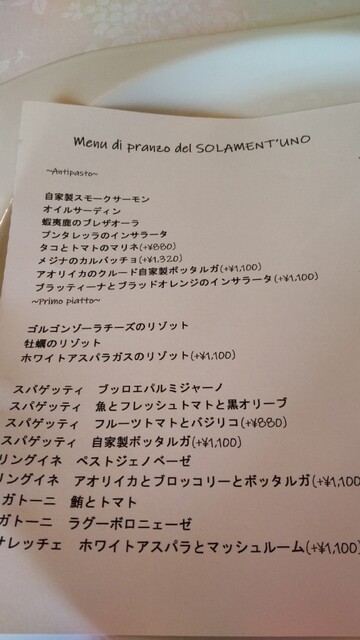 Menu di pranzo del SOLAMENT'UNO
~Antipasto~
自家製スモークサーモン
オイルサーディン
蝦夷鹿のブレザオーラ
プンタレッラのインサラータ
タコとトマトのマリネ(+¥880)
メジナのカルパッチョ(+¥1,320)
アオリイカのクルード自家製ボッタルガ(+¥1,100)
ブラッティーナとブラッドオレンジのインサラータ(+¥1,100)
~Primo piatto~
ゴルゴンゾーラチーズのリゾット
牡蠣のリゾット
ホワイトアスパラガスのリゾット(+¥1,100)
スパゲッティ ブッロエパルミジャーノ
スパゲッティ 魚とフレッシュトマトと黒オリーブ
スパゲッティ フルーツトマトとバジリコ(+¥880)
スパゲッティ 自家製ボッタルガ(+¥1,100)
リングイネ ペストジェノベーゼ
リングイネ アオリイカとブロッコリーとボッタルガ(+¥1,100
ガトーニ 鮪とトマト
ガトーニ ラグーボロニェーゼ
オレッチェ ホワイトアスパラとマッシュルーム(+¥1,100)